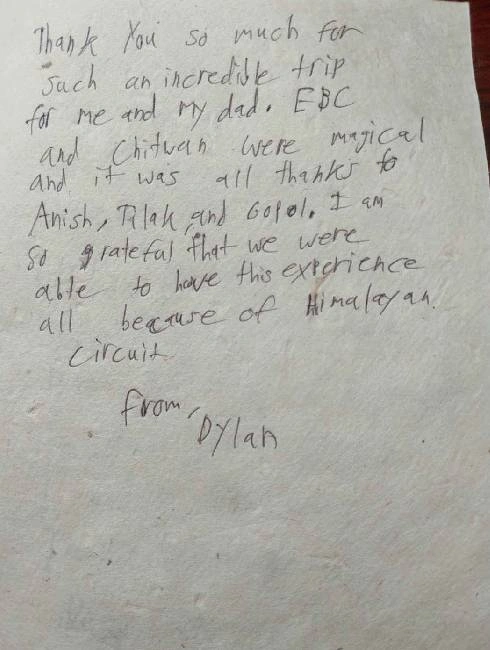 Thank You so much for
such an incredible trip
for me and my dad. EBC
and Chitwan were magical
and it was all thanks to
Anish, Tilak, and Gopol. I am
so grateful that we were
able to have this experience
all because of Himalayan
circuit
from,
Dylan